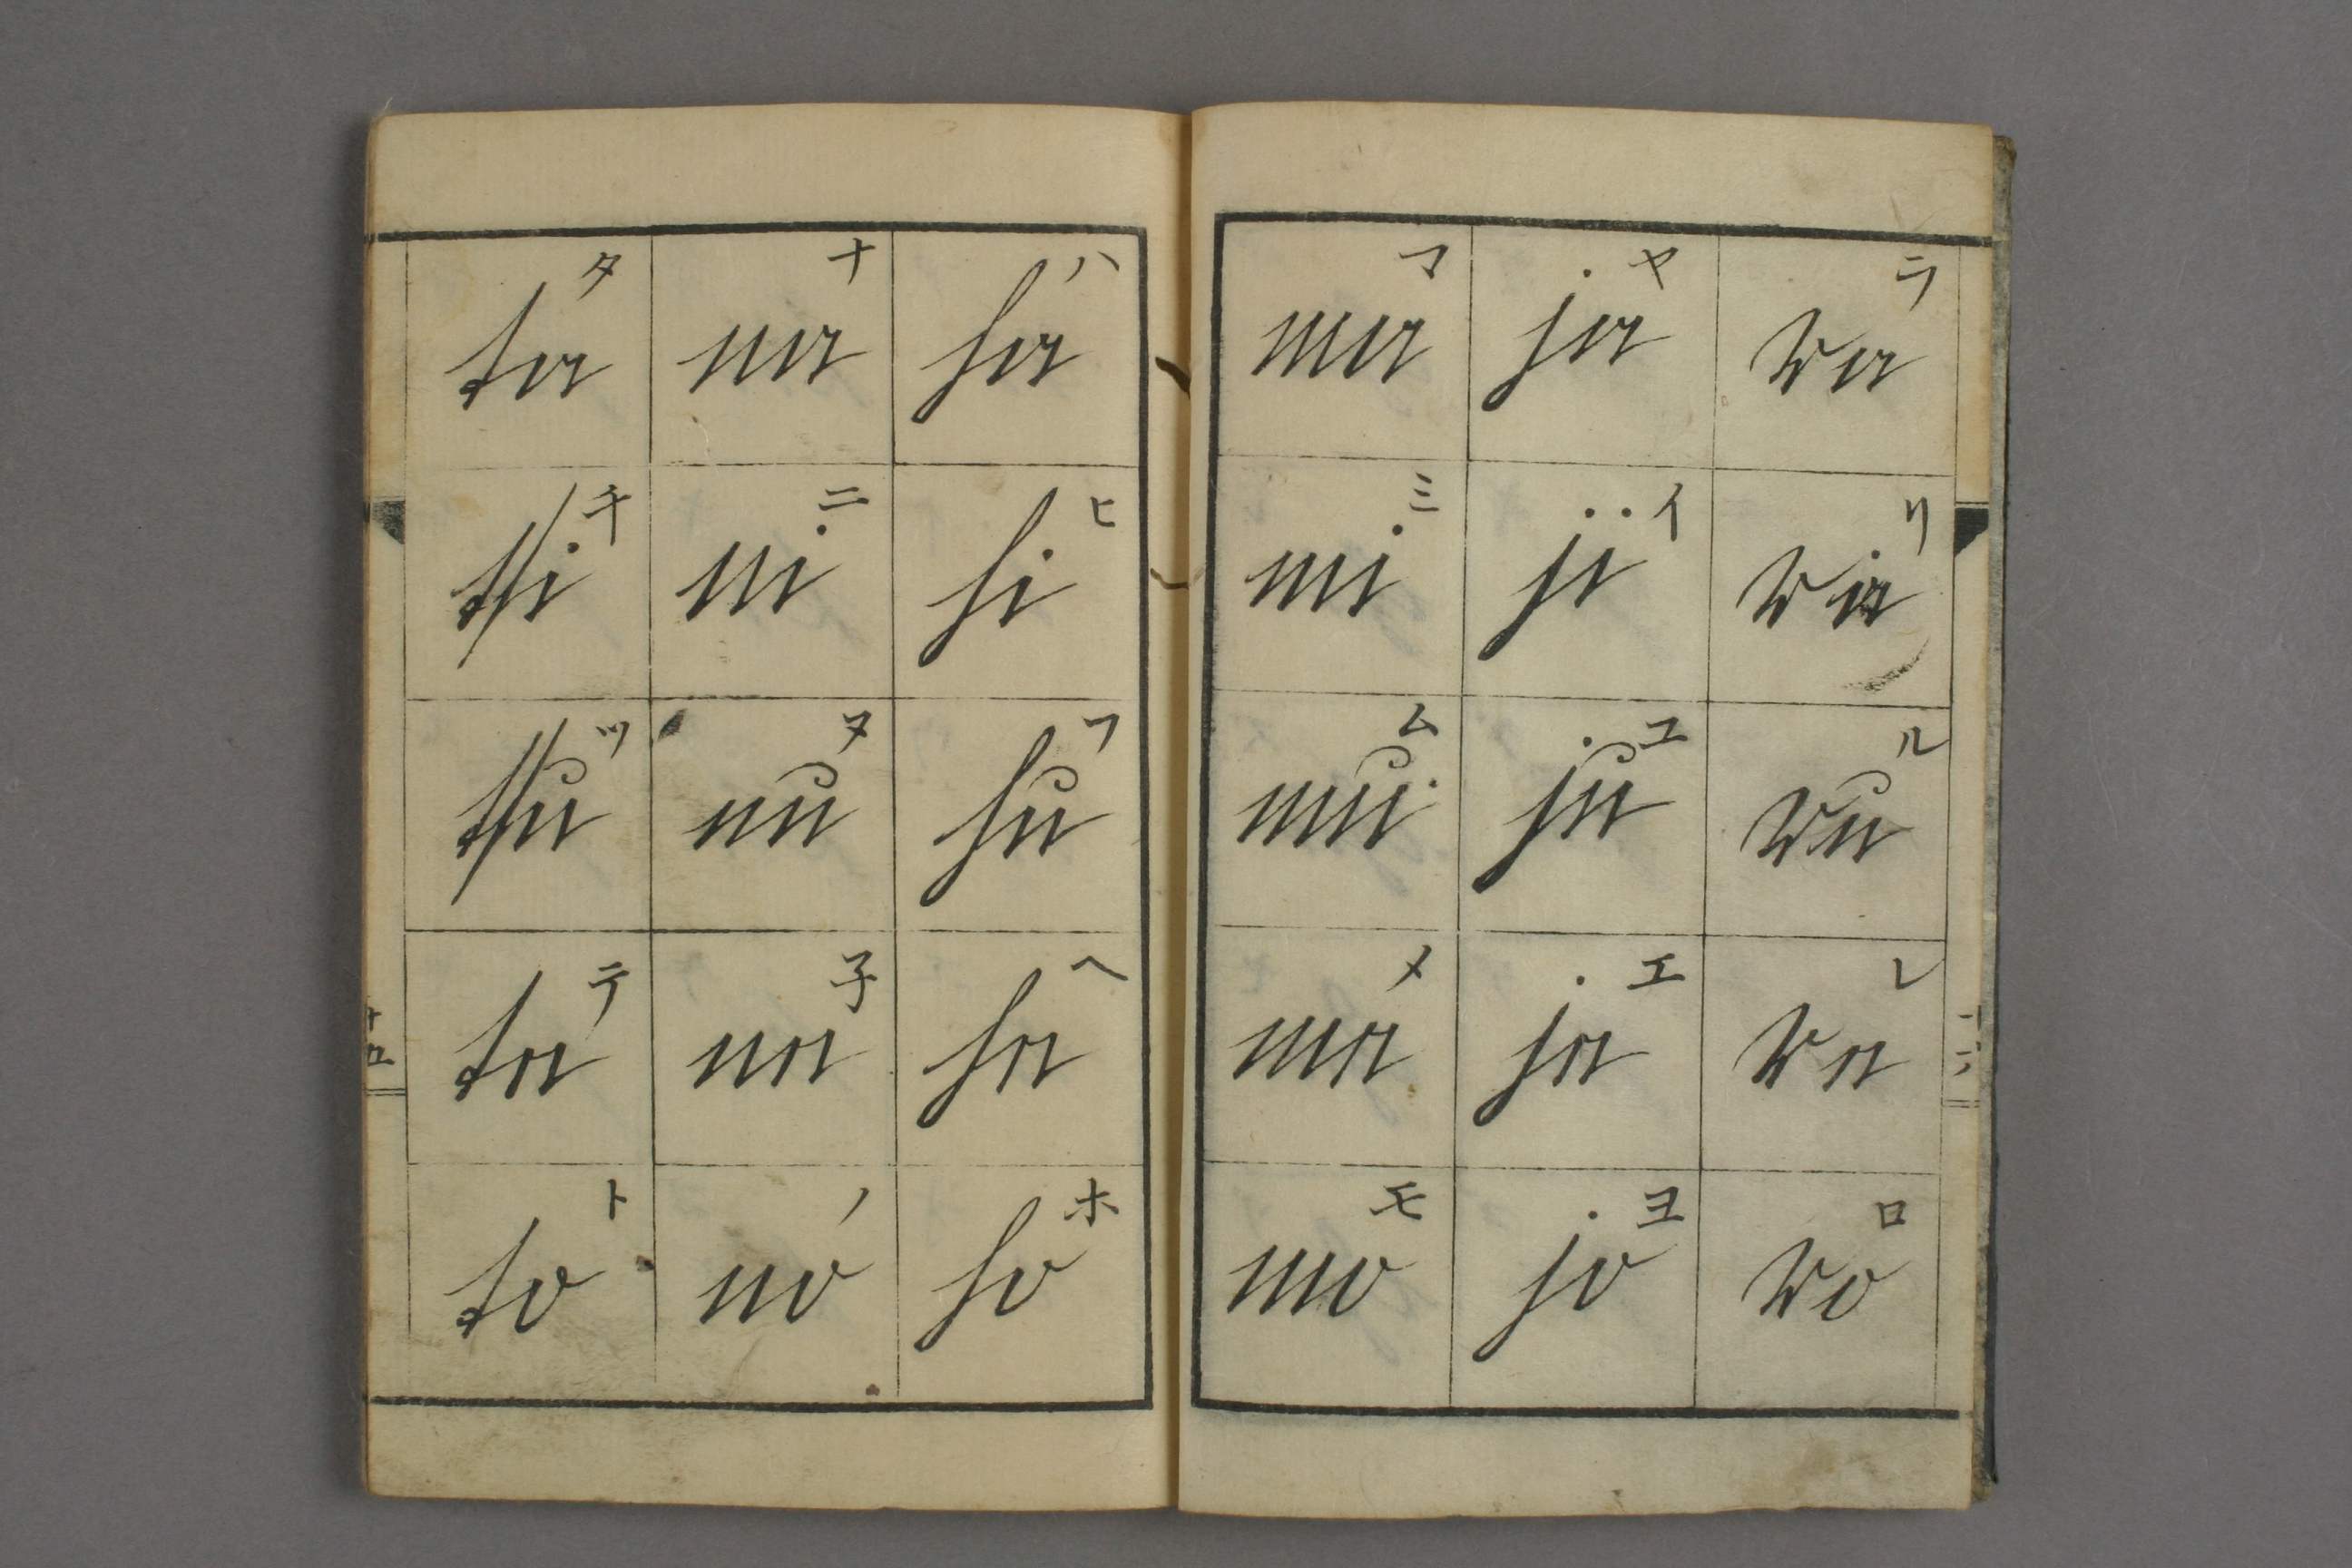 タ ta
チ tsi
ツ tsu
テ te
ト to
ナ na
ニ ni
ヌ nu
子 ne
ノ no
ハ ha
ヒ hi
フ hu
ヘ he
ホ ho
マ ma
ミ mi
ム mu
メ me
モ mo
ヤ ja
イ ji
ユ ju
エ je
ヨ jo
ラ ra
リ ri
ル ru
レ re
ロ ro